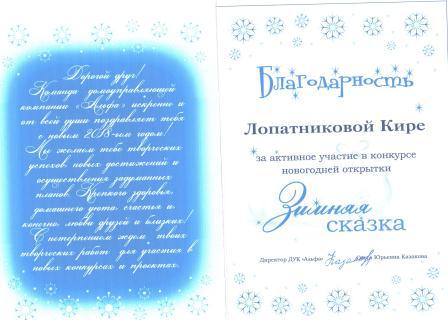 Дорогой друг!
Команда домоуправляющей
компании «Альфа» искренне и
от всей души поздравляет тебя
с новым 2018-ым годом!
Мы желаем тебе творческих
успехов, новых достижений и
осуществления задуманных
планов. Крепкого здоровья,
домашнего уюта, счастья и
конечно любви друзей и близких!
С нетерпением ждем твоих
творческих работ для участия в
новых конкурсах и проектах.
Благодарность
Лопатниковой Кире
за активное участие в конкурсе
новогодней открытки
Зимняя
сказка
Директор ДУК «Альфа» Юрьевна Казакова